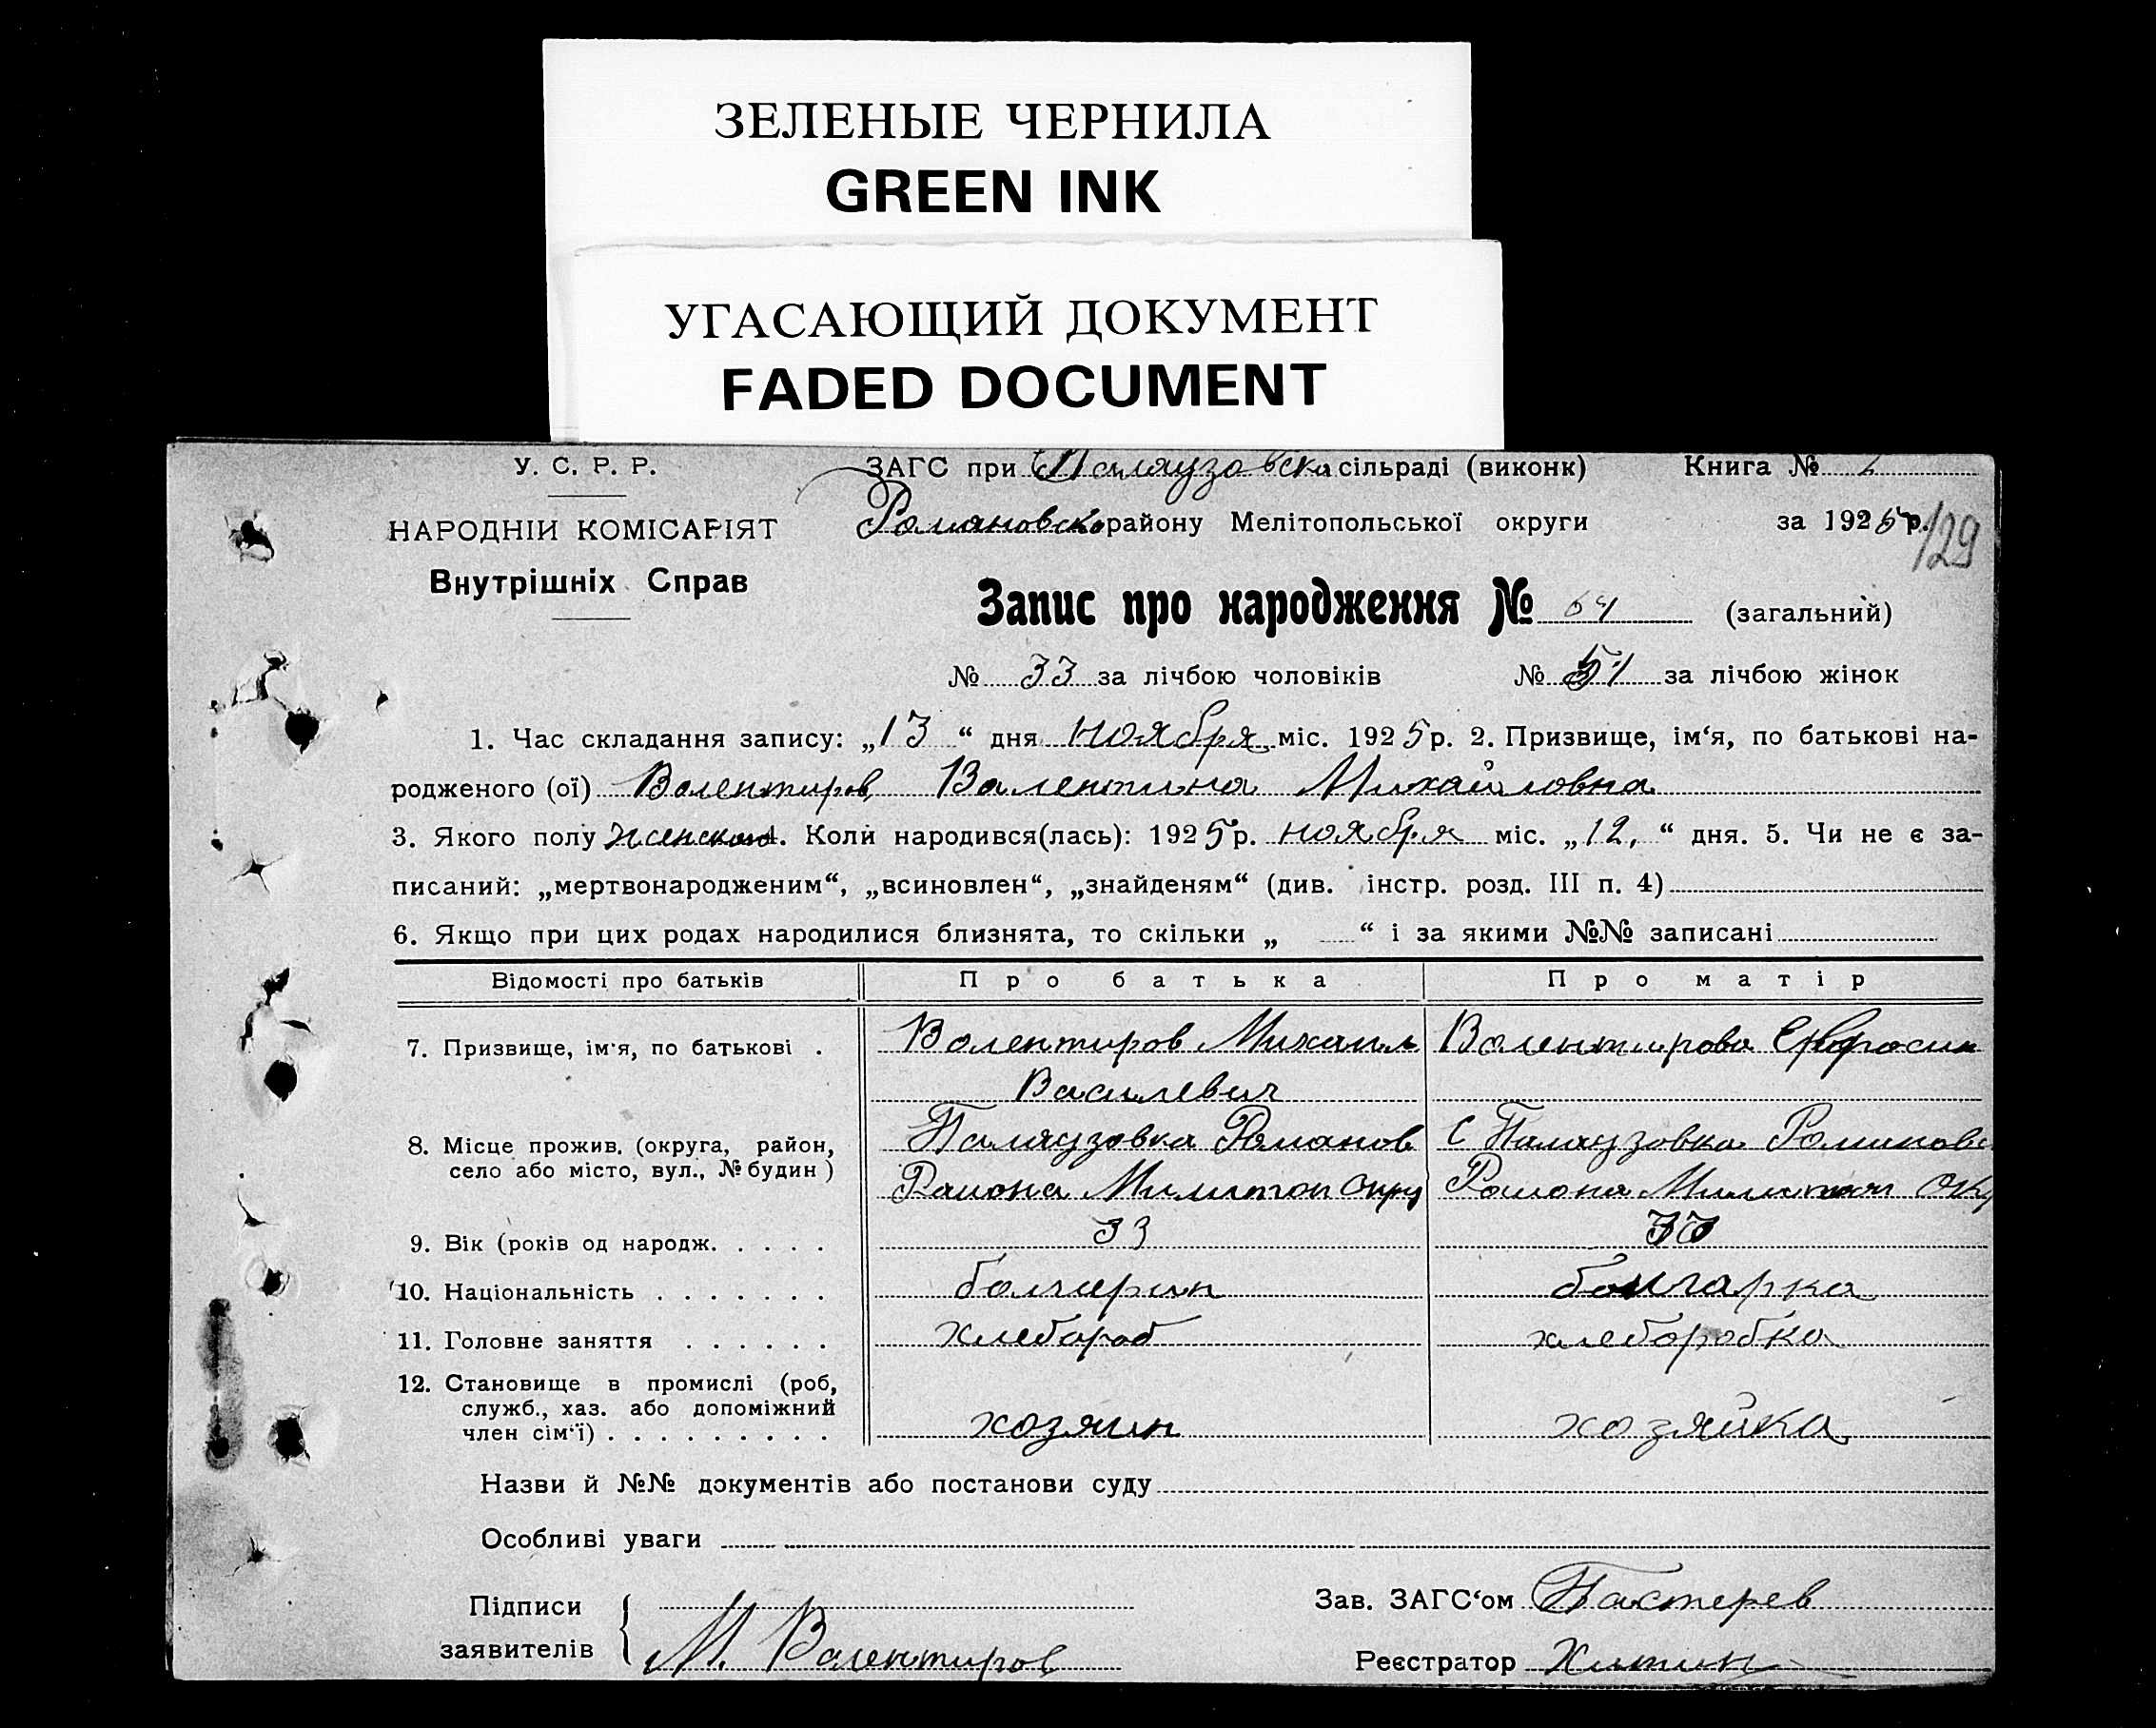 ЗЕЛЕНЫЕ ЧЕРНИЛА
GREEN INK
УГАСАЮЩИЙ ДОКУМЕНТ
FADED DOCUMENT
У. С. Р. Р. ЗАГС при Палаузовска сільраді (виконк) Книга №
НАРОДНІЙ КОМІСАРІЯТ Романовско району Мелітопольської округи за 1925 р. 129
Внутрішніх Справ
Запис про народження № 64 (загальний)
№ 33 за лічбою чоловіків № 51 за лічбою жінок
1. Час складання запису: „13“ дня ноября міс. 1925 р. 2. Призвище, ім‘я, по батькові на-
родженого (ої) Валентиров, Валентина Михайловна
3. Якого полу женском 4. Коли народився(лась): 1925 р. ноября міс. „12,“ дня. 5. Чи не є за-
писаний: „мертвонародженим“, „всиновлен“, „знайденям“ (див. інстр. розд. III п. 4)
6. Якщо при цих родах народилися близнята, то скільки „ “ і за якими №№ записані
Відомості про батьків Про батька Про матір
7. Призвище, ім‘я, по батькові . Волентиров Михаил Валентирова Ефросин
Василевич
8. Місце прожив. (округа, район, село або місто, вул., № будин) Палаузовка Романов С Палаузовка Романовс
Раиона Милитоп Окру Раиона Милитоп Окр
9. Вік (років од народж. . . . . 33
10. Національність . . . . . . . болгарин болгарка
11. Головне заняття . . . . . . хлебороб хлеборобка
12. Становище в промислі (роб,
служб., хаз. або допоміжний
член сім‘ї) . . . . . . . . . хозяин хозяйка
Назви й №№ документів або постанови суду
Особливі уваги
Підписи Зав. ЗАГС‘ом Пастерев
заявителів М. Валентиров Реєстратор